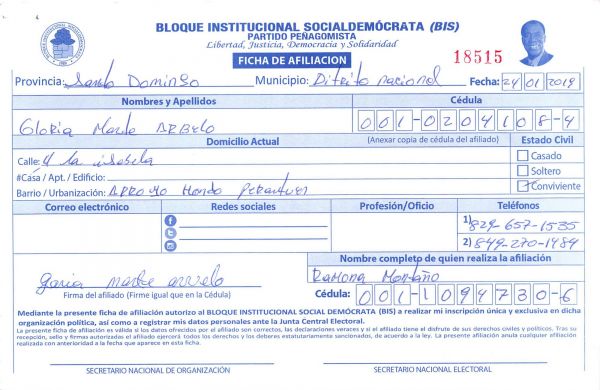 BLOQUE INSTITUCIONAL SOCIALDEMÓCRATA (BIS)
PARTIDO PEÑAGOMISTA
Libertad, Justicia, Democracia y Solidaridad
FICHA DE AFILIACION
18515
Provincia: Santo Domingo Municipio: Ditrito nacional Fecha: 24/01/2019
Nombres y Apellidos Cédula
Gloria Marte ARBELO 001-0204108-4
Domicilio Actual (Anexar copia de cédula del afiliado) Estado Civil
Calle: 4 la isabela Casado
#Casa / Apt. / Edificio: Soltero
Barrio / Urbanización: ARROYO Hondo Conviviente
Correo electrónico Redes sociales Profesión/Oficio Teléfonos
1) 829-657-1535
2) 849-270-1484
Nombre completo de quien realiza la afiliación
Ramona Montaño
marte
Firma del afiliado (Firme igual que en la Cédula) Cédula: 001-1094730-6
Mediante la presente ficha de afiliación autorizo al BLOQUE INSTITUCIONAL SOCIAL DEMÓCRATA (BIS) a realizar mi inscripción única y exclusiva en dicha
organización política, así como a registrar mis datos personales ante la Junta Central Electoral.
La presente ficha de afiliación es válida si los datos ofrecidos por el afiliado son correctos, las declaraciones veraces y si el afiliado tiene el disfrute de sus derechos civiles y políticos. Tras su
recepción, sello y firmas autorizadas el afiliado ejercerá todos los derechos y los deberes estatutariamente sancionados, de acuerdo a la ley. La presente afiliación anula cualquier afiliación
realizada con anterioridad a la fecha que aparece en esta ficha.
SECRETARIO NACIONAL DE ORGANIZACIÓN SECRETARIO NACIONAL ELECTORAL